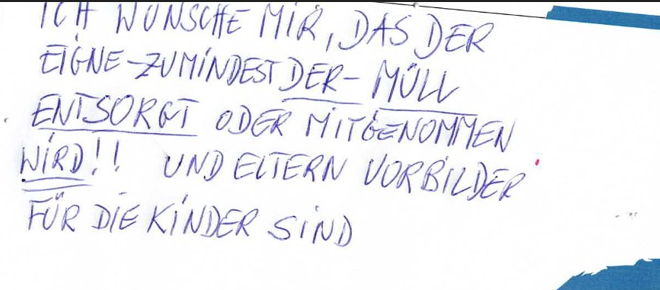 ICH WÜNSCHE MIR, DAS DER
EIGNE-ZUMINDEST DER- MÜLL
ENTSORGT ODER MITGENOMMEN
WIRD!! UND ELTERN VORBILDER
FÜR DIE KINDER SIND